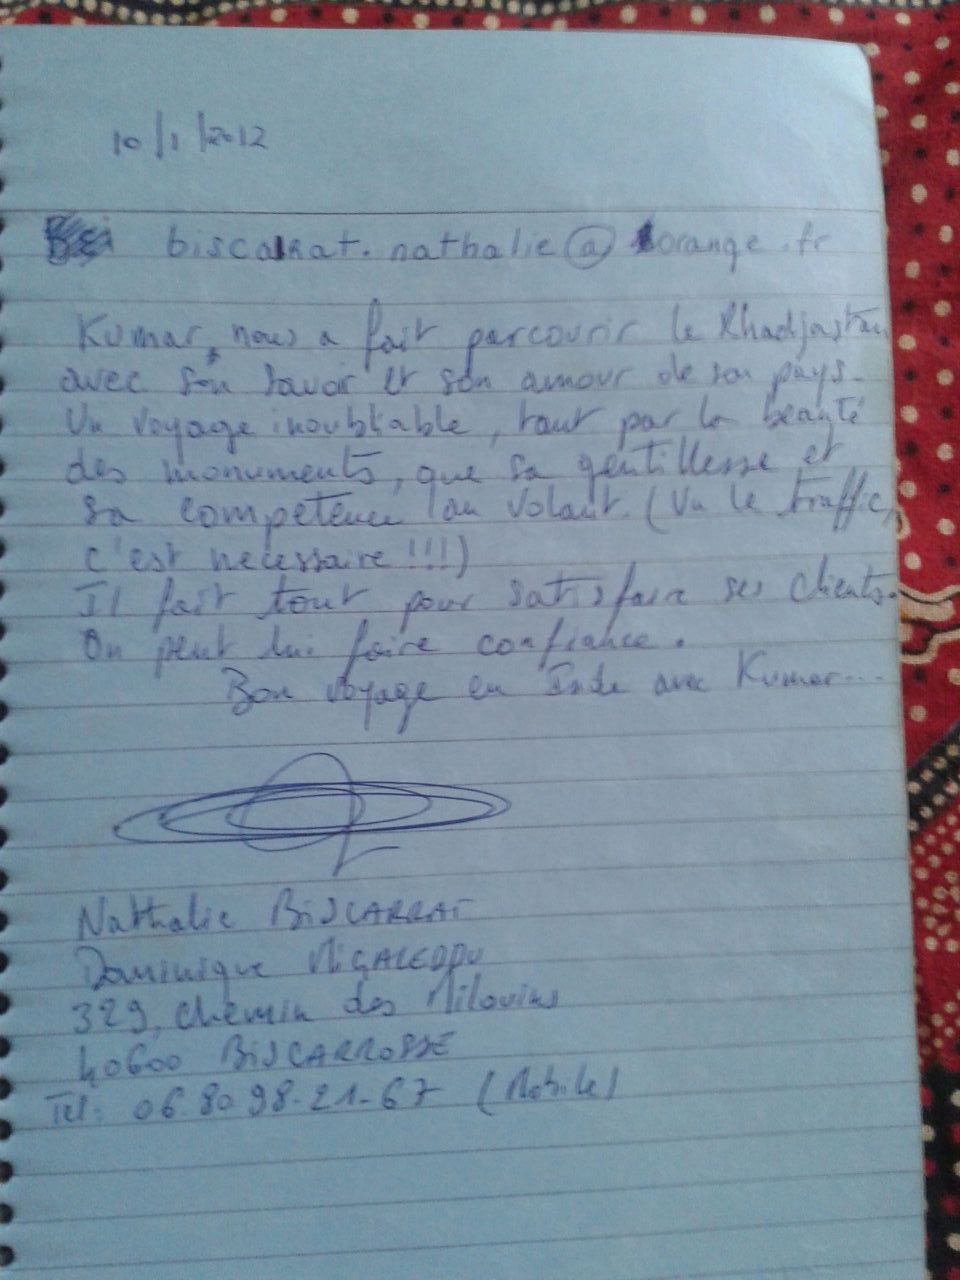 10/1/2012
biscarrat.nathalie@orange.fr
Kumar, nous a fait parcourir le Rhadjastan
avec son savoir et son amour de son pays.
Un voyage inoubliable, tant par la beauté
des monuments, que sa gentillesse et
sa compétence au volant. (Vu le traffic,
c'est necessaire !!!)
Il fait tout pour satisfaire ses clients.
On peut lui faire confiance.
Bon voyage en Inde avec Kumar...
Nathalie BISCARRAT
Dominique
329, chemin des Milouins
40600 BISCARROSSE
Tel: 06 80 98.21.67 (Mobile)